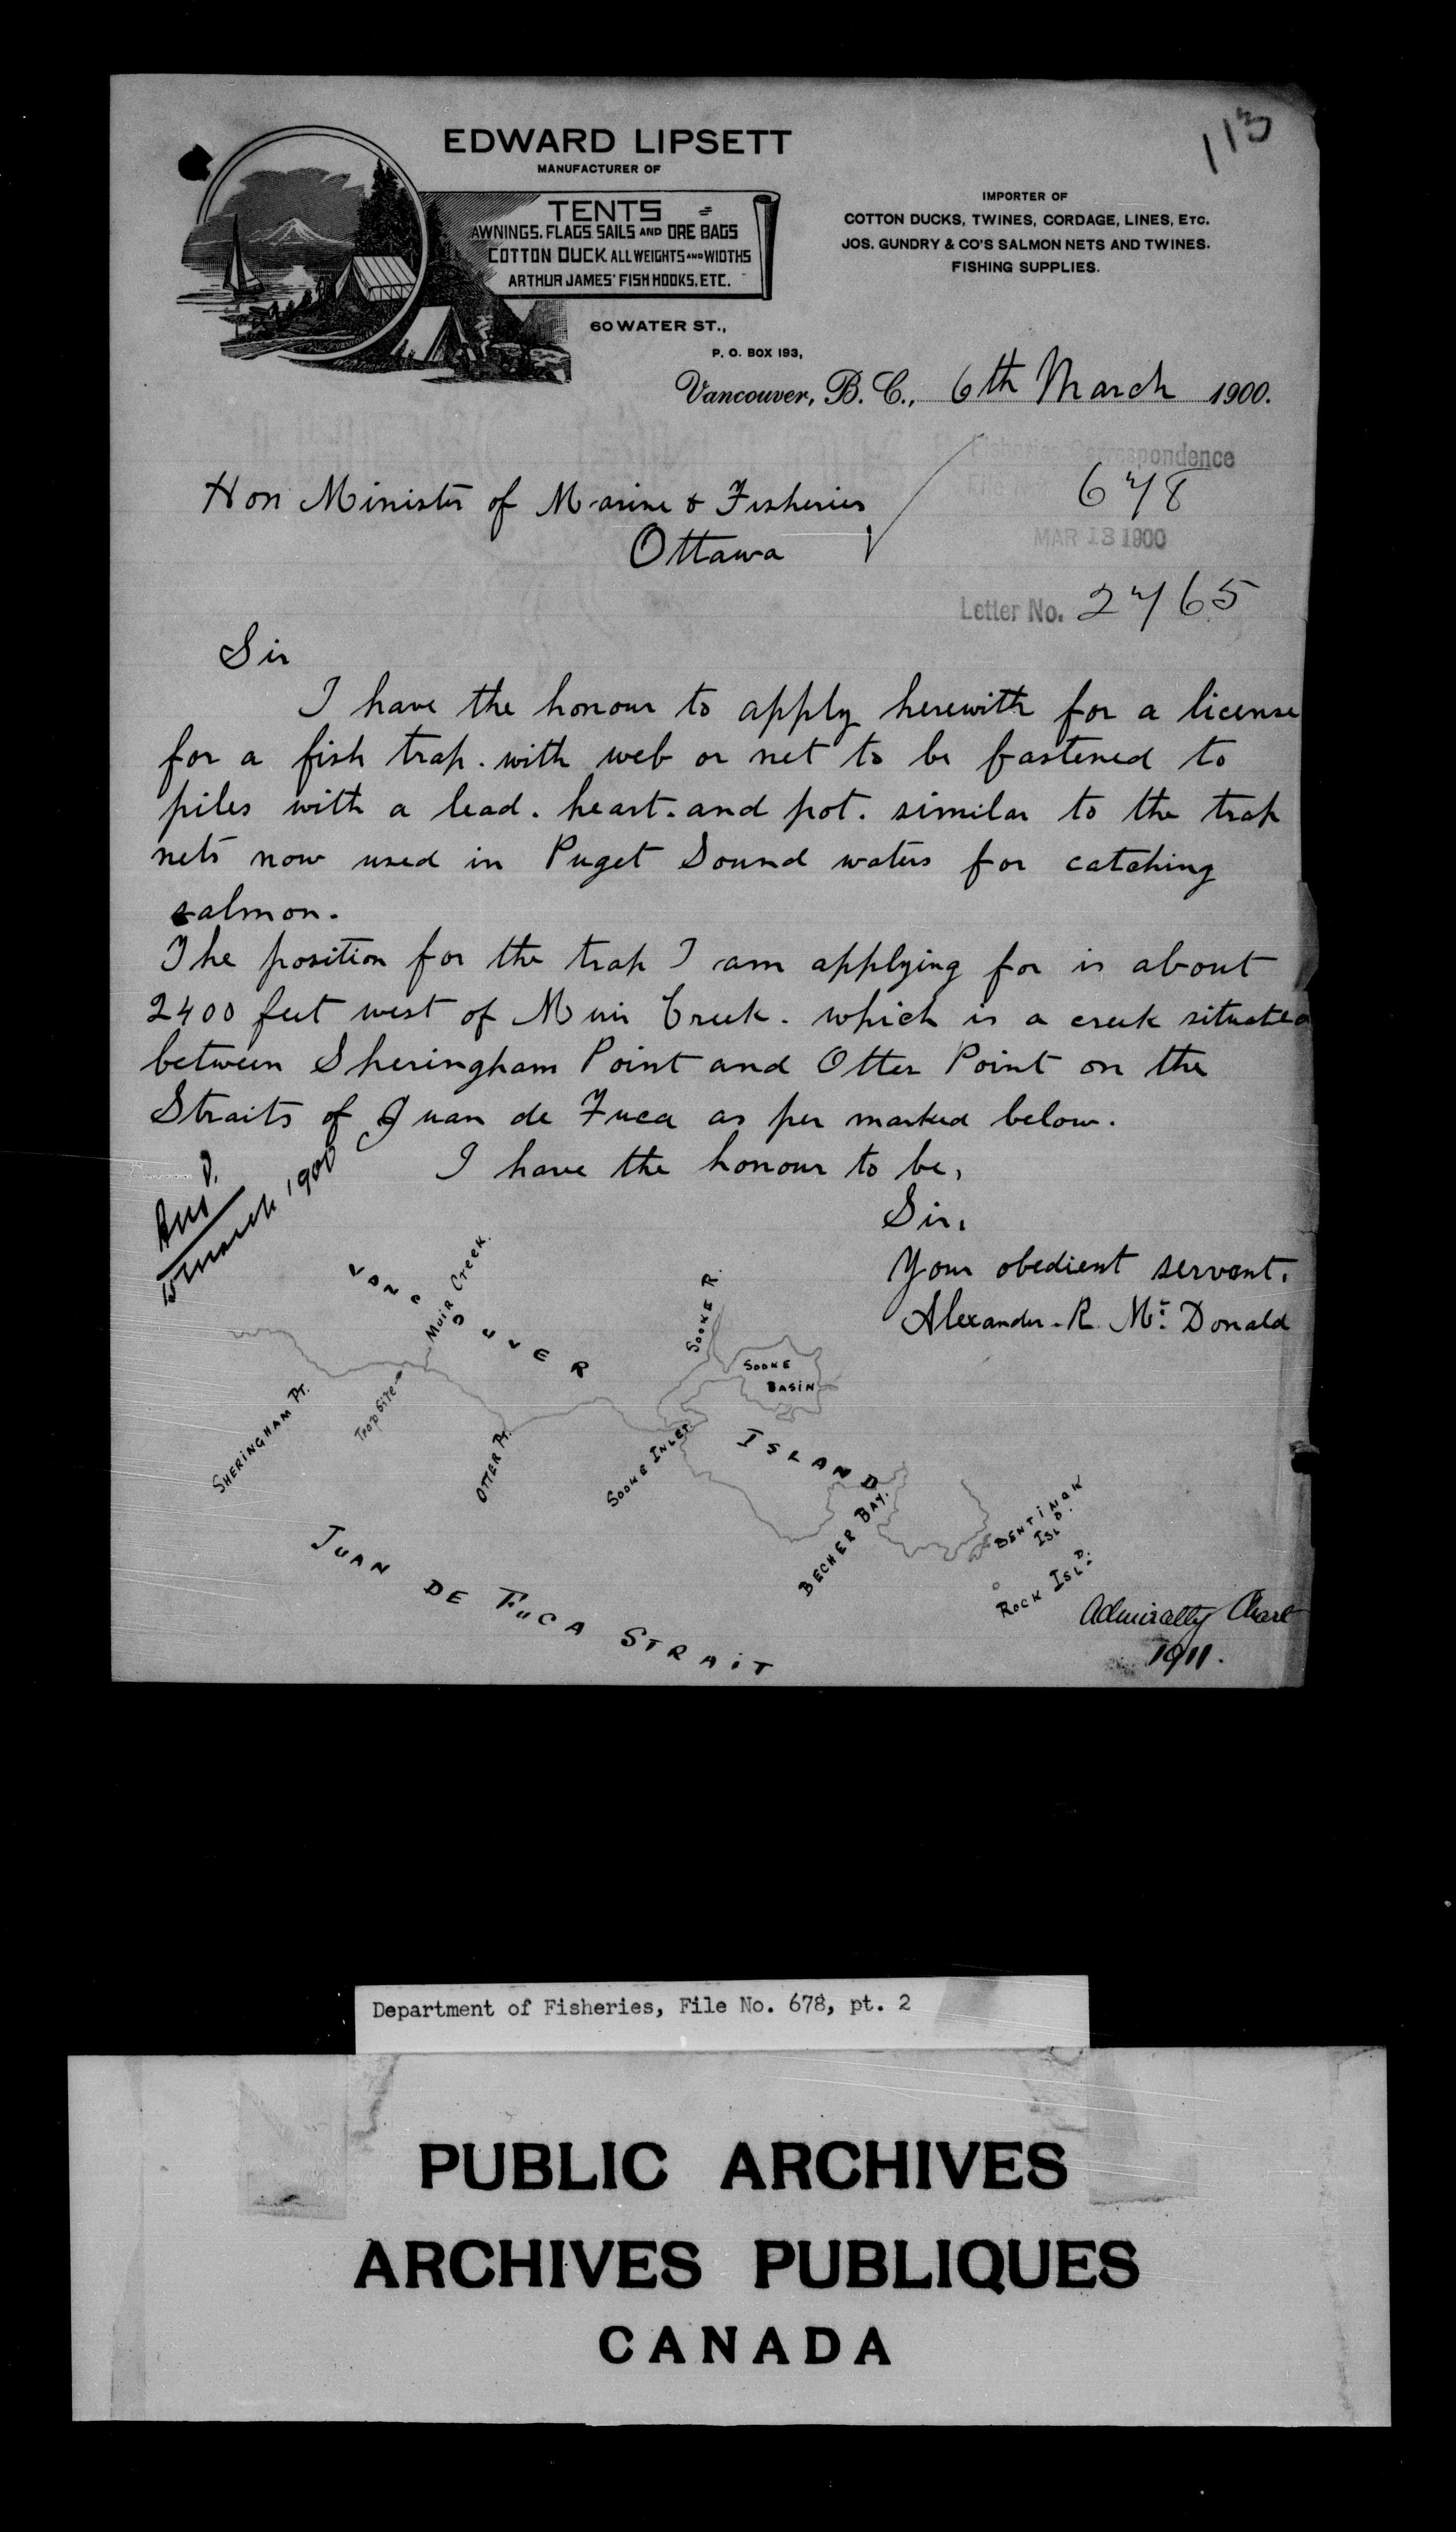 113
EDWARD LIPSETT
MANUFACTURER OF
TENTS
AWNINGS, FLAGS, SAILS AND ORE BAGS
COTTON DUCK ALL WEIGHTS AND WIDTHS
ARTHUR JAMES' FISH HOOKS, ETC.
IMPORTER OF
COTTON DUCKS, TWINES, CORDAGE, LINES, ETC.
JOS. GUNDRY & CO'S SALMON NETS AND TWINES.
FISHING SUPPLIES.
60 WATER ST.,
P. O. BOX 193,
Vancouver, B. C., 6th March 1900.
Fisheries Correspondence
678
MAR 13 1900
Letter No. 2765
Hon Minister of Marine & Fisheries
Ottawa
Sir
I have the honour to apply herewith for a license
for a fish trap. with web or net to be fastened to
piles with a lead. heart. and pot. similar to the trap
nets now used in Puget Sound waters for catching
salmon.
The position for the trap I am applying for is about
2400 feet west of Muir Creek. which is a creek situated
between Sheringham Point and Otter Point on the
Straits of Juan de Fuca as per marked below.
I have the honour to be,
Sir,
Your obedient servant.
Alexander. R. Mc. Donald
Ans'd.
15 March 1900
VANCOUVER
MUIR Creek.
SOOKE R.
SOOKE
BASIN
SHERINGHAM PT.
Trap Site
OTTER PT.
SOOKE INLET.
ISLAND
BECHER BAY.
BENTINCK
ISLD.
ROCK ISLD.
JUAN DE FUCA STRAIT
Admiralty Chart
1911.
Department of Fisheries, File No. 678, pt. 2
PUBLIC ARCHIVES
ARCHIVES PUBLIQUES
CANADA